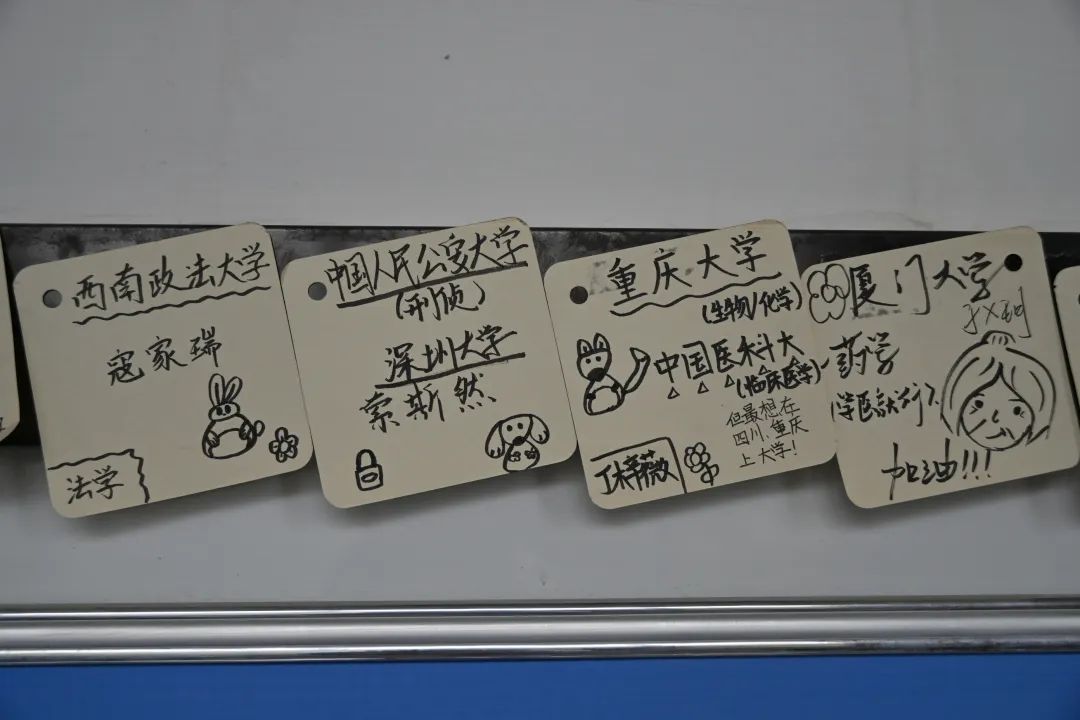 西南政法大学
寇家瑞
法学
中国人民公安大学
(刑侦)
深圳大学
索斯然
重庆大学
(生物/化学)
中国医科大
(临床医学)
但最想在
四川、重庆
上大学!
厦门大学
药学
加油!!!